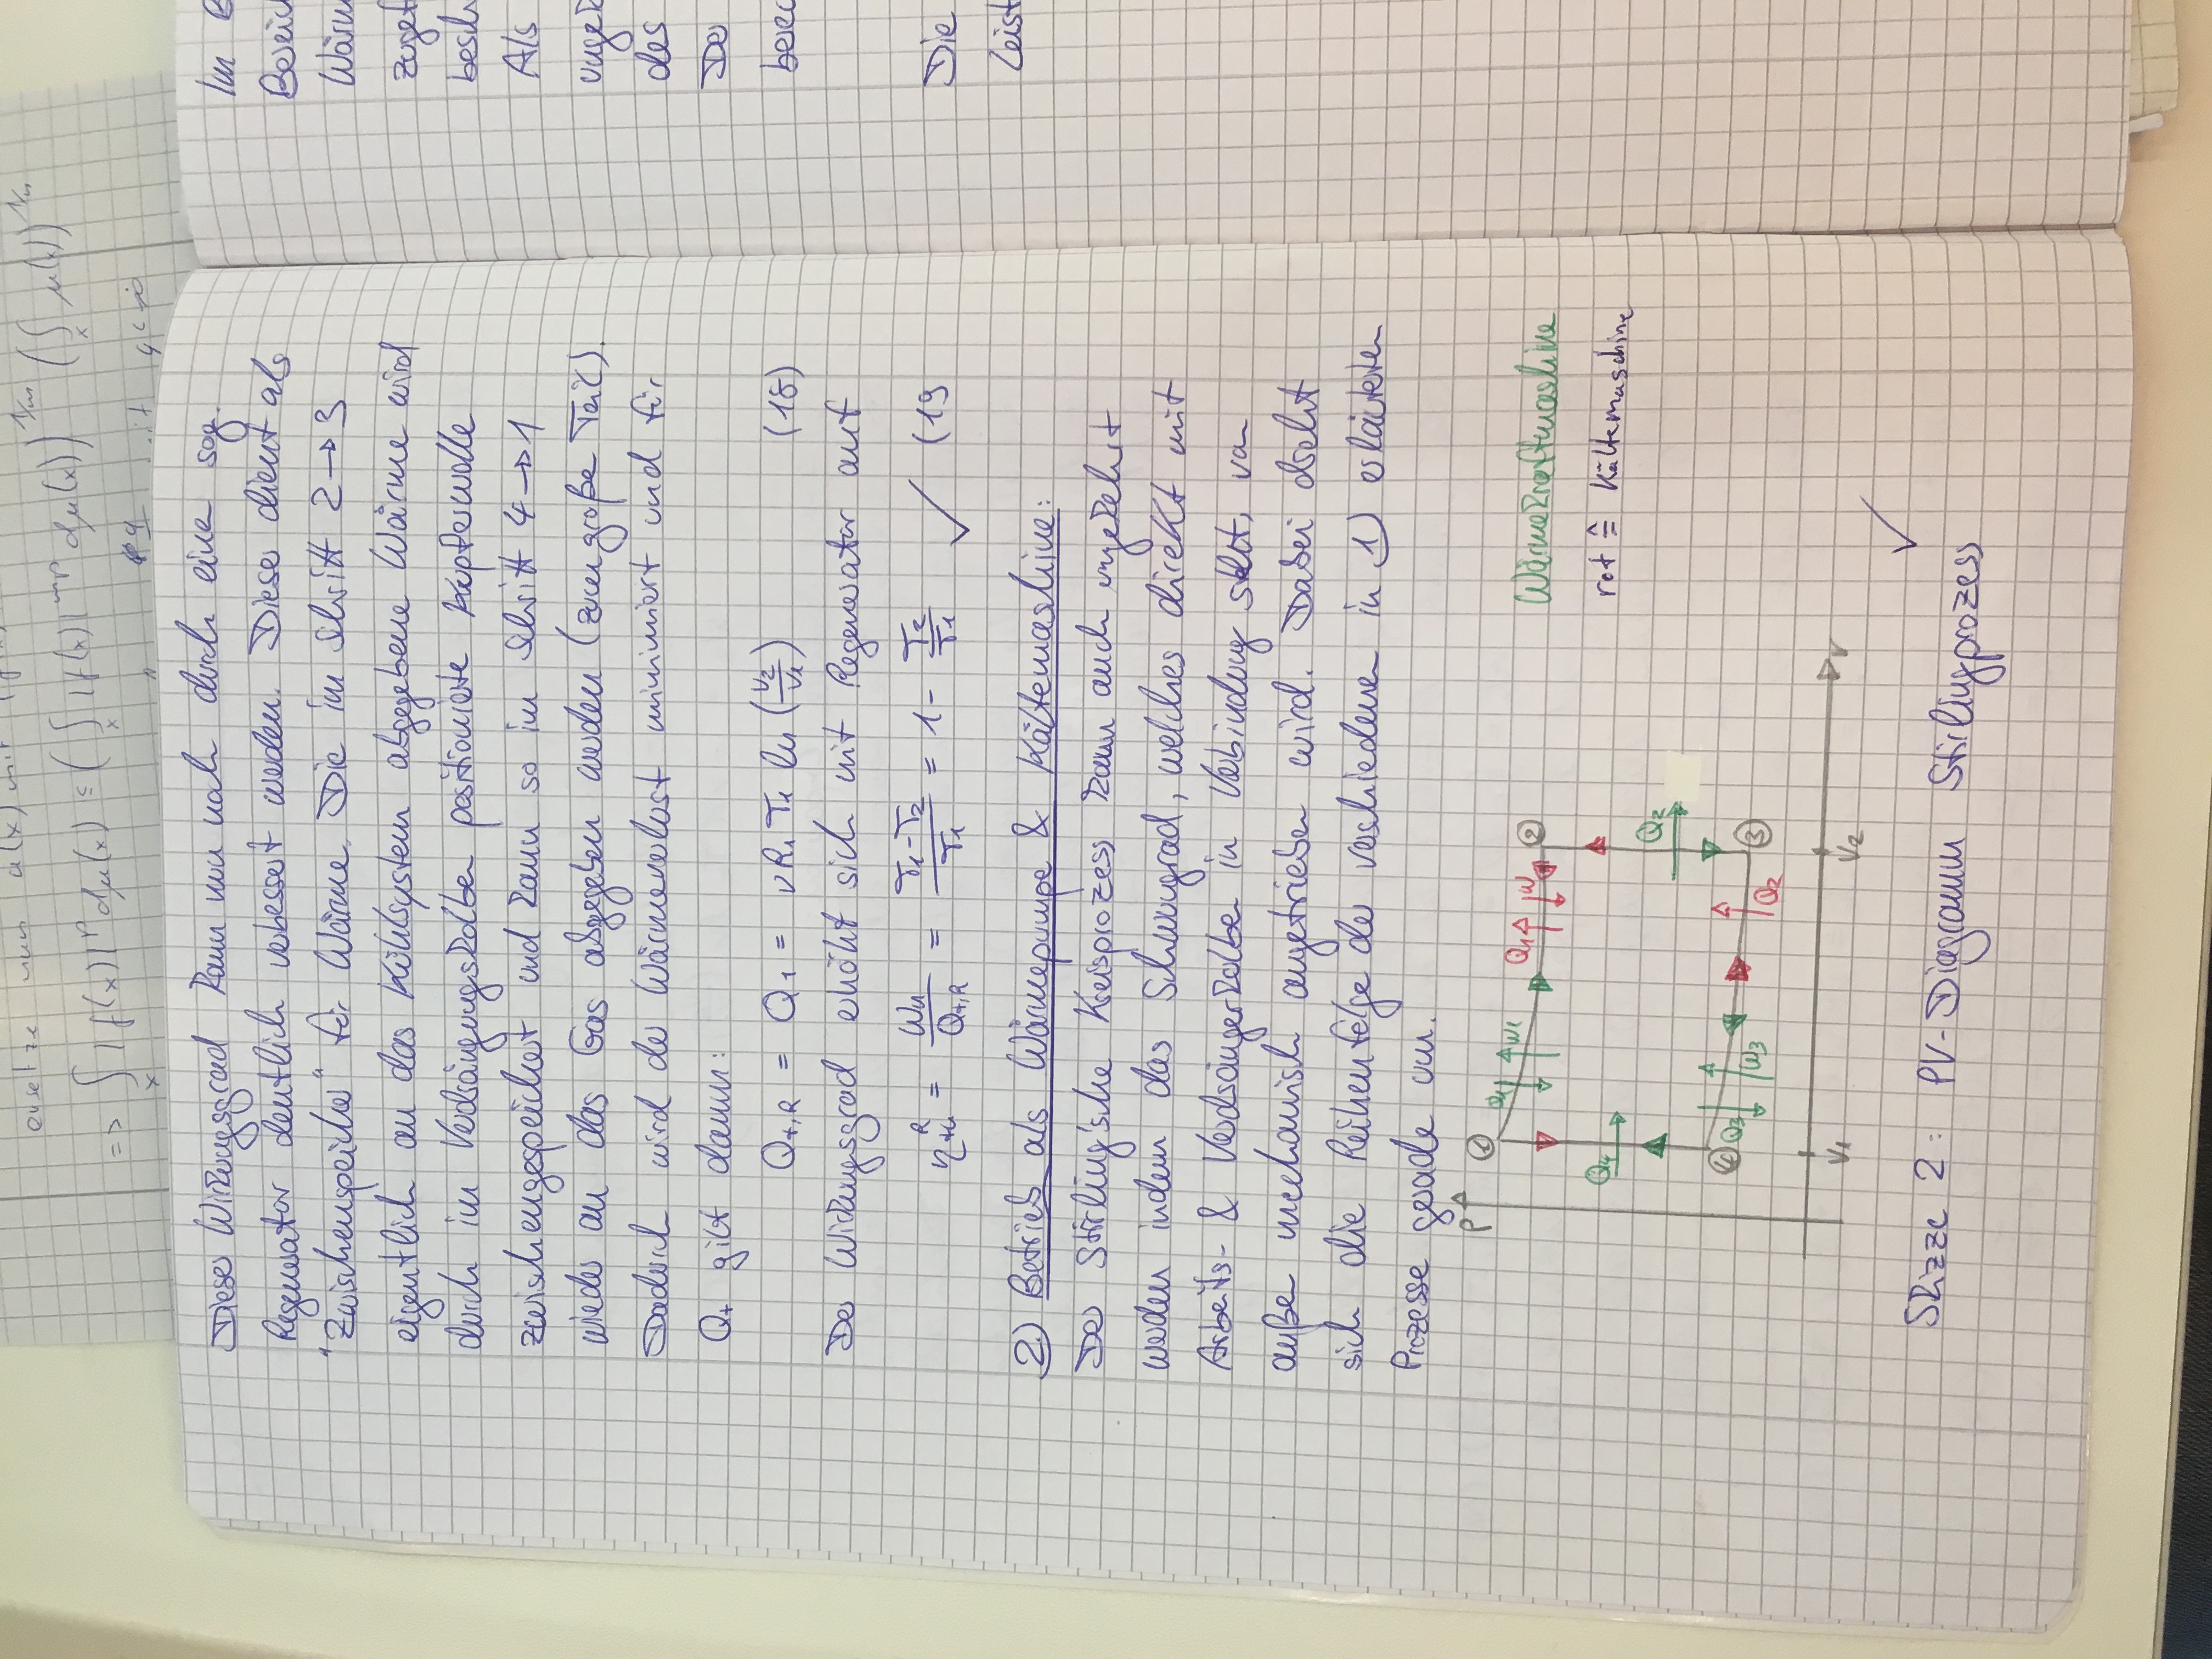 ersetze nun u(x) mit
=> ∫ |f(x)|^p dμ(x) ≤ ( ∫ |f(x)|^mp dμ(x) )^1/m ( ∫ μ(x) )^1/n
x x x
Dieser Wirkungsgrad kann nun noch durch einen sog.
Regenerator deutlich verbessert werden. Dieser dient als
"Zwischenspeicher" für Wärme. Die im Schritt 2→3
eigentlich an das Kühlsystem abgegebene Wärme wird
durch im Verdrängungskolben positionierte Kupferwolle
zwischengespeichert und kann so im Schritt 4→1
wieder an das Gas abgegeben werden (zum große Teil).
Dadurch wird der Wärmeverlust minimiert und für
Q+ gilt dann:
Q+,R = Q1 = νR1 T1 ln (V2/V1) (18)
Der Wirkungsgrad erhöht sich mit Regenerator auf
η_th^R = W4/Q+,R = T1-T2/T1 = 1 - T2/T1 ✓ (19
2) Betrieb als Wärmepumpe & Kältemaschine:
Der Stirling'sche Kreisprozess kann auch umgekehrt
werden indem das Schwungrad, welches direkt mit
Arbeits- & Verdrängerkolben in Verbindung steht, von
außen mechanisch angetrieben wird. Dabei dreht
sich die Reihenfolge der verschiedenen in 1) erläuterten
Prozesse gerade um.
P
① Q1 W1 Q1 W ②
Wärmekraftmaschine
Q4
rot ≙ Kältemaschine
Q2
④ Q3 W3 Q2 ③
V1 V2 V
✓
Skizze 2: PV-Diagramm Stirlingprozess
Im B
Bereich
Wärm
zugef
besch
Als
ungek
des
Der
berec
Die
Leist